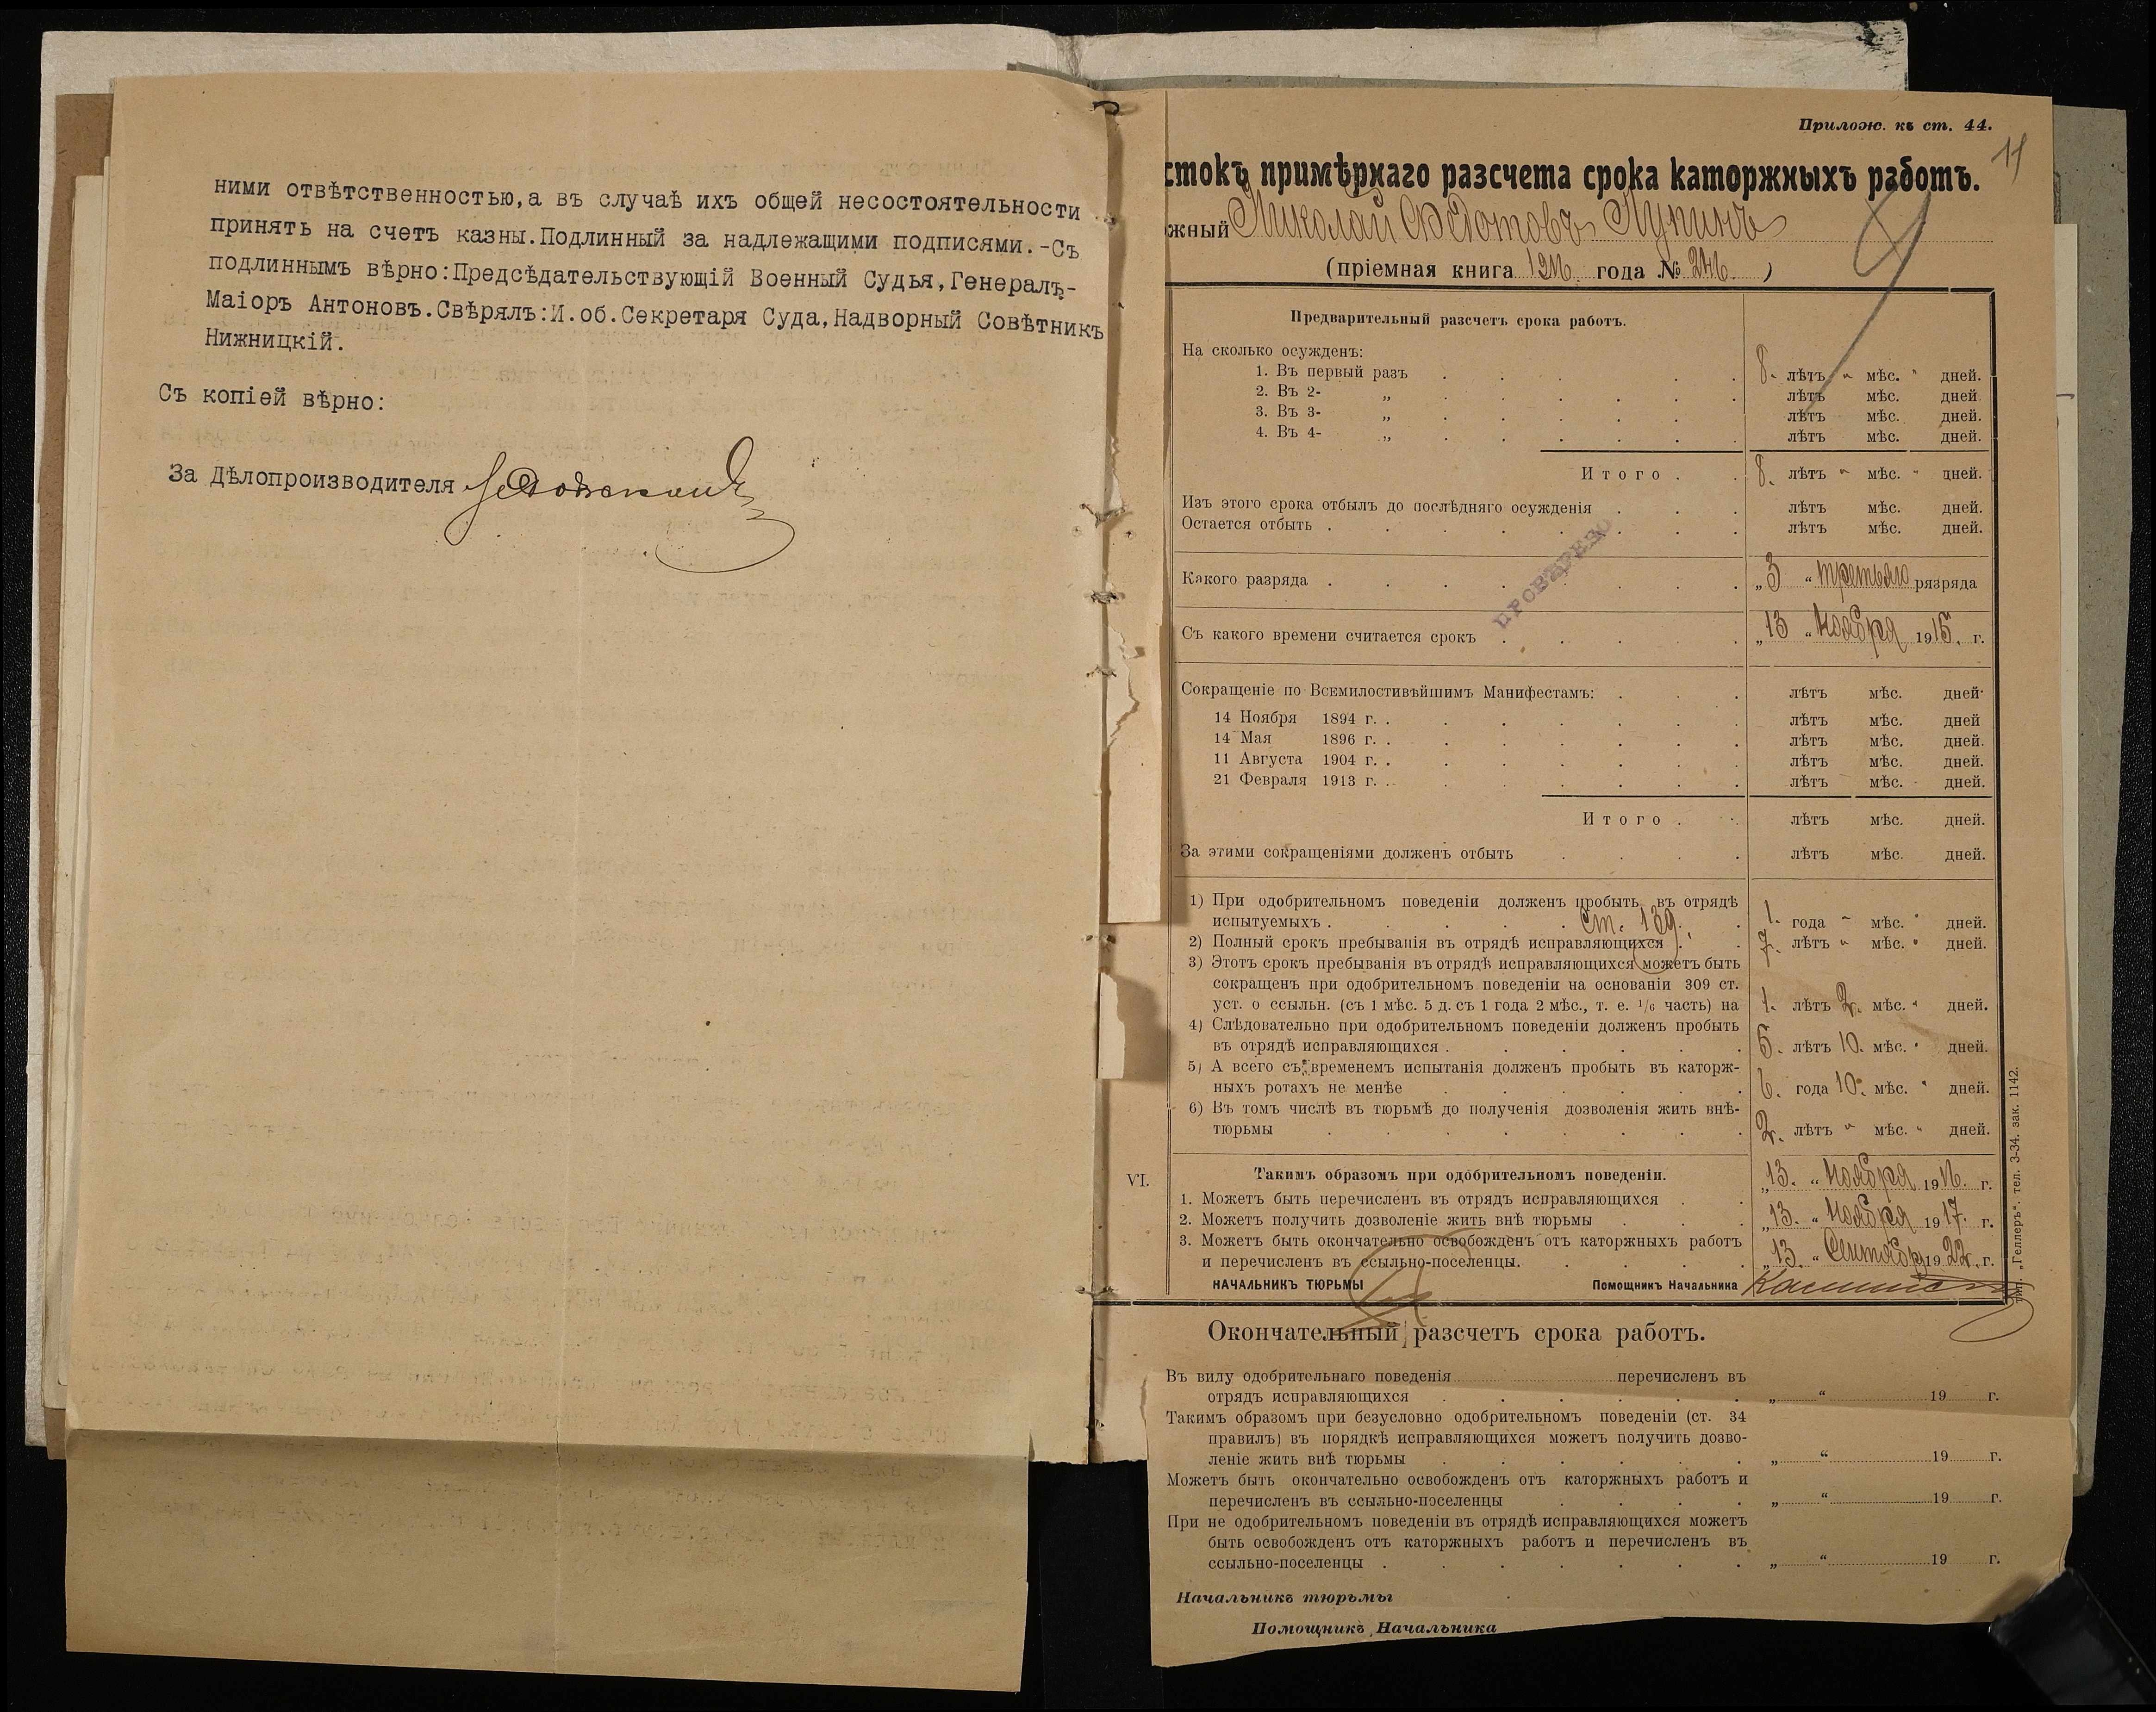 ними отвѣтственностью,а въ случаѣ ихъ общей несостоятельности
принять на счетъ казны.Подлинный за надлежащими подписями.-Съ
подлиннымъ вѣрно:Предсѣдательствующій Военный Судья,Генералъ-
Маіоръ Антоновъ.Свѣрялъ:И.об.Секретаря Суда,Надворный Совѣтникъ
Нижницкій.
Съ копіей вѣрно:
За Дѣлопроизводителя
Прилож. къ ст. 44.
11
стокъ примѣрнаго разсчета срока каторжныхъ работъ.
жный Николай Ѳедотовъ Лупинъ
(пріемная книга 1916 года № 246 )
Предварительный разсчетъ срока работъ.
На сколько осужденъ:
1. Въ первый разъ 8. лѣтъ „ мѣс. „ дней.
2. Въ 2- „ лѣтъ мѣс. дней
3. Въ 3- „ лѣтъ мѣс. дней.
4. Въ 4- „ лѣтъ мѣс. дней.
Итого . 8. лѣтъ „ мѣс. „ дней.
Изъ этого срока отбылъ до послѣдняго осужденія лѣтъ мѣс. дней.
Остается отбыть . лѣтъ мѣс. дней.
провѣрено
Какого разряда . „3 “ третьяго рязряда
Съ какого времени считается срокъ „13 “ Ноября 1915. г.
Сокращеніе по Всемилостивѣйшимъ Манифестамъ: лѣтъ мѣс. дней
14 Ноября 1894 г. . лѣтъ мѣс. дней
14 Мая 1896 г. . лѣтъ мѣс. дней.
11 Августа 1904 г. . лѣтъ мѣс. дней.
21 Февраля 1913 г. . лѣтъ мѣс. дней.
Итого . лѣтъ мѣс. дней.
За этими сокращеніями долженъ отбыть лѣтъ мѣс. дней.
1) При одобрительномъ поведеніи долженъ пробыть въ отрядѣ
испытуемыхъ . ст. 139. 1. года „ мѣс. „ дней.
2) Полный срокъ пребыванія въ отрядѣ исправляющихся . 7. лѣтъ „ мѣс. „ дней.
3) Этотъ срокъ пребыванія въ отрядѣ исправляющихся можетъ быть
сокращенъ при одобрительномъ поведеніи на основаніи 309 ст.
уст. о ссыльн. (съ 1 мѣс. 5 д. съ 1 года 2 мѣс., т. е. 1/6 часть) на 1. лѣтъ 2. мѣс. „ дней.
4) Слѣдовательно при одобрительномъ поведеніи долженъ пробыть
въ отрядѣ исправляющихся . 5. лѣтъ 10. мѣс. „ дней.
5) А всего съ временемъ испытанія долженъ пробыть въ каторж-
ныхъ ротахъ не менѣе 6. года 10. мѣс. „ дней.
6) Въ томъ числѣ въ тюрьмѣ до полученія дозволенія жить внѣ-
тюрьмы 2. лѣтъ „ мѣс. „ дней.
VI. Такимъ образомъ при одобрительномъ поведеніи.
1. Можетъ быть перечисленъ въ отрядъ исправляющихся „13. “ Ноября 1916. г.
2. Можетъ получить дозволеніе жить внѣ тюрьмы „13. “ Ноября 1917. г.
3. Можетъ быть окончательно освобожденъ отъ каторжныхъ работъ
и перечисленъ въ ссыльно-поселенцы. „13. “ Сентября 1922. г.
НАЧАЛЬНИКЪ ТЮРЬМЫ Помощникъ Начальника
тип. „Геллеръ“. тел. 3-34. зак. 1142.
Окончательный разсчетъ срока работъ.
Въ виду одобрительнаго поведенія перечисленъ въ
отрядъ исправляющихся „ “ 19 г.
Такимъ образомъ при безусловно одобрительномъ поведеніи (ст. 34
правилъ) въ порядкѣ исправляющихся можетъ получить дозво-
леніе жить внѣ тюрьмы „ “ 19 г.
Можетъ быть окончательно освобожденъ отъ каторжныхъ работъ и
перечисленъ въ ссыльно-поселенцы „ “ 19 г.
При не одобрительномъ поведеніи въ отрядѣ исправляющихся можетъ
быть освобожденъ отъ каторжныхъ работъ и перечисленъ въ
ссыльно-поселенцы . „ “ 19 г.
Начальникъ тюрьмы
Помощникъ Начальника